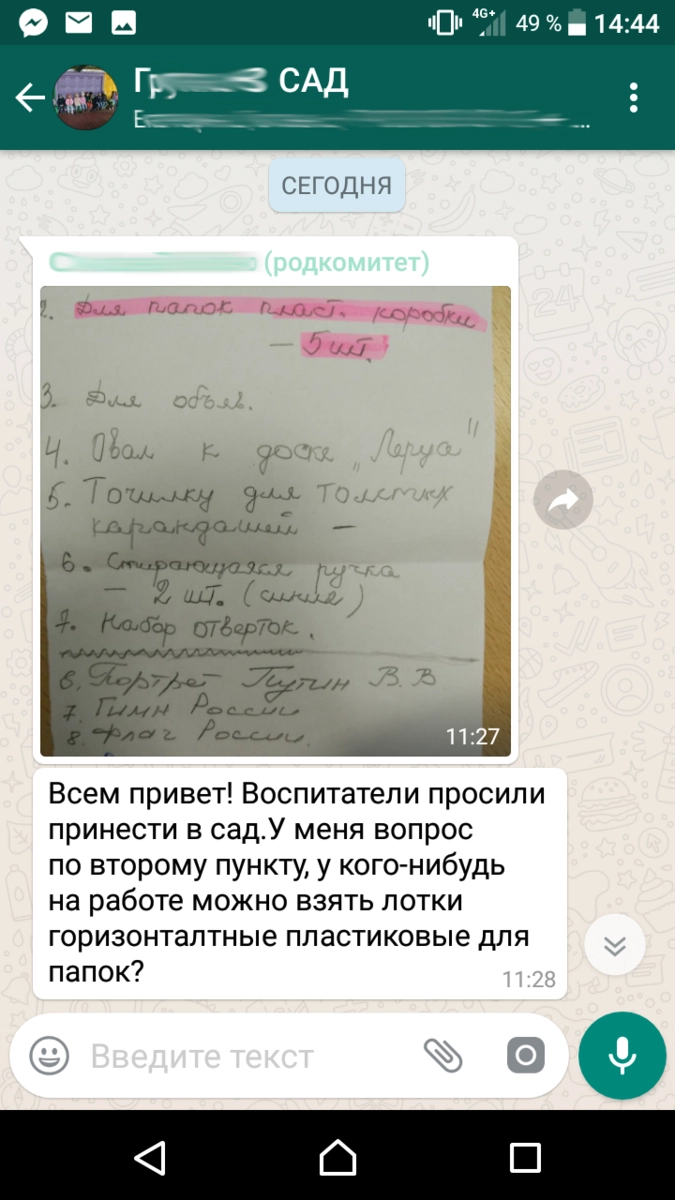 4G+ 49 % 14:44
САД
СЕГОДНЯ
(родкомитет)
2. Для папок пласт. коробки
— 5 шт.
3. Для объяв.
4. Овал к доске „Леруа"
5. Точилку для толстых
карандашей —
6. Стирающаяся ручка
— 2 шт. (синие)
7. Набор отверток.
6. Портрет Путин В. В
7. Гимн России
8. Флаг России.
11:27
Всем привет! Воспитатели просили
принести в сад.У меня вопрос
по второму пункту, у кого-нибудь
на работе можно взять лотки
горизонталтные пластиковые для
папок?
11:28
Введите текст